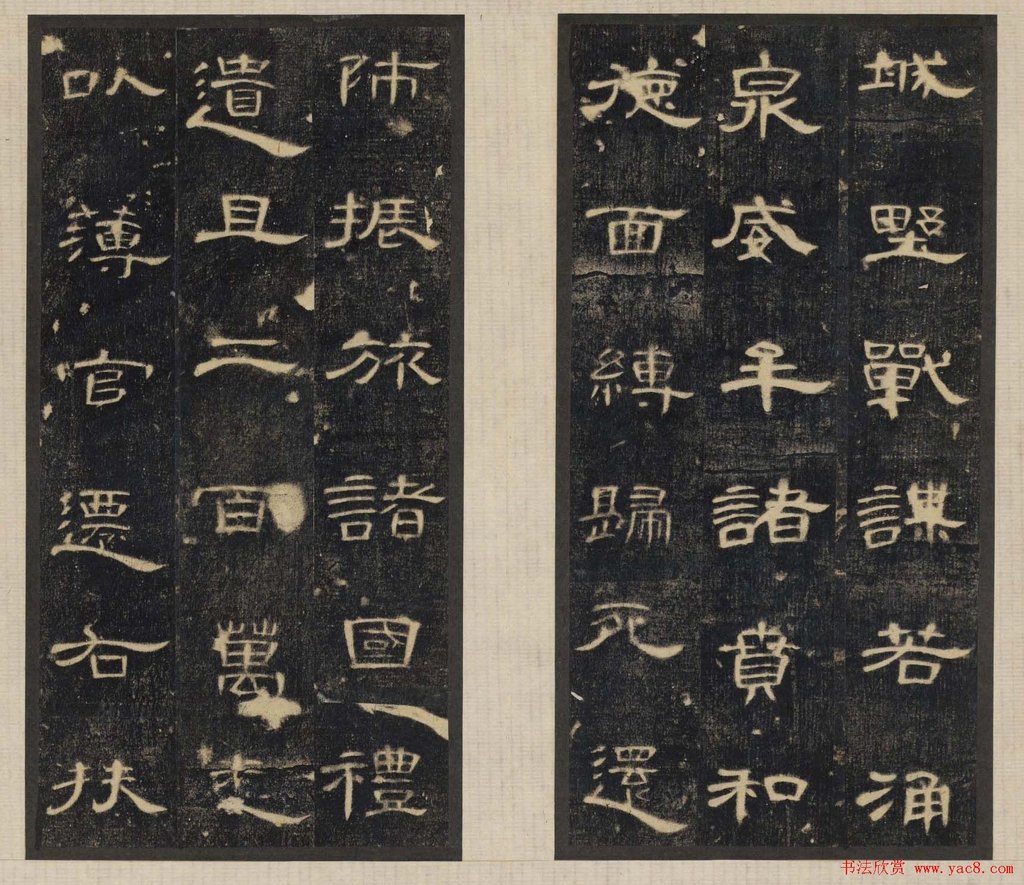 城墅戰謀若涌
泉威牟諸賁和
德面縛歸死還
師振旅諸國禮
遺且二百萬悉
以薄官遷右扶
书法欣赏 www.yac8.com